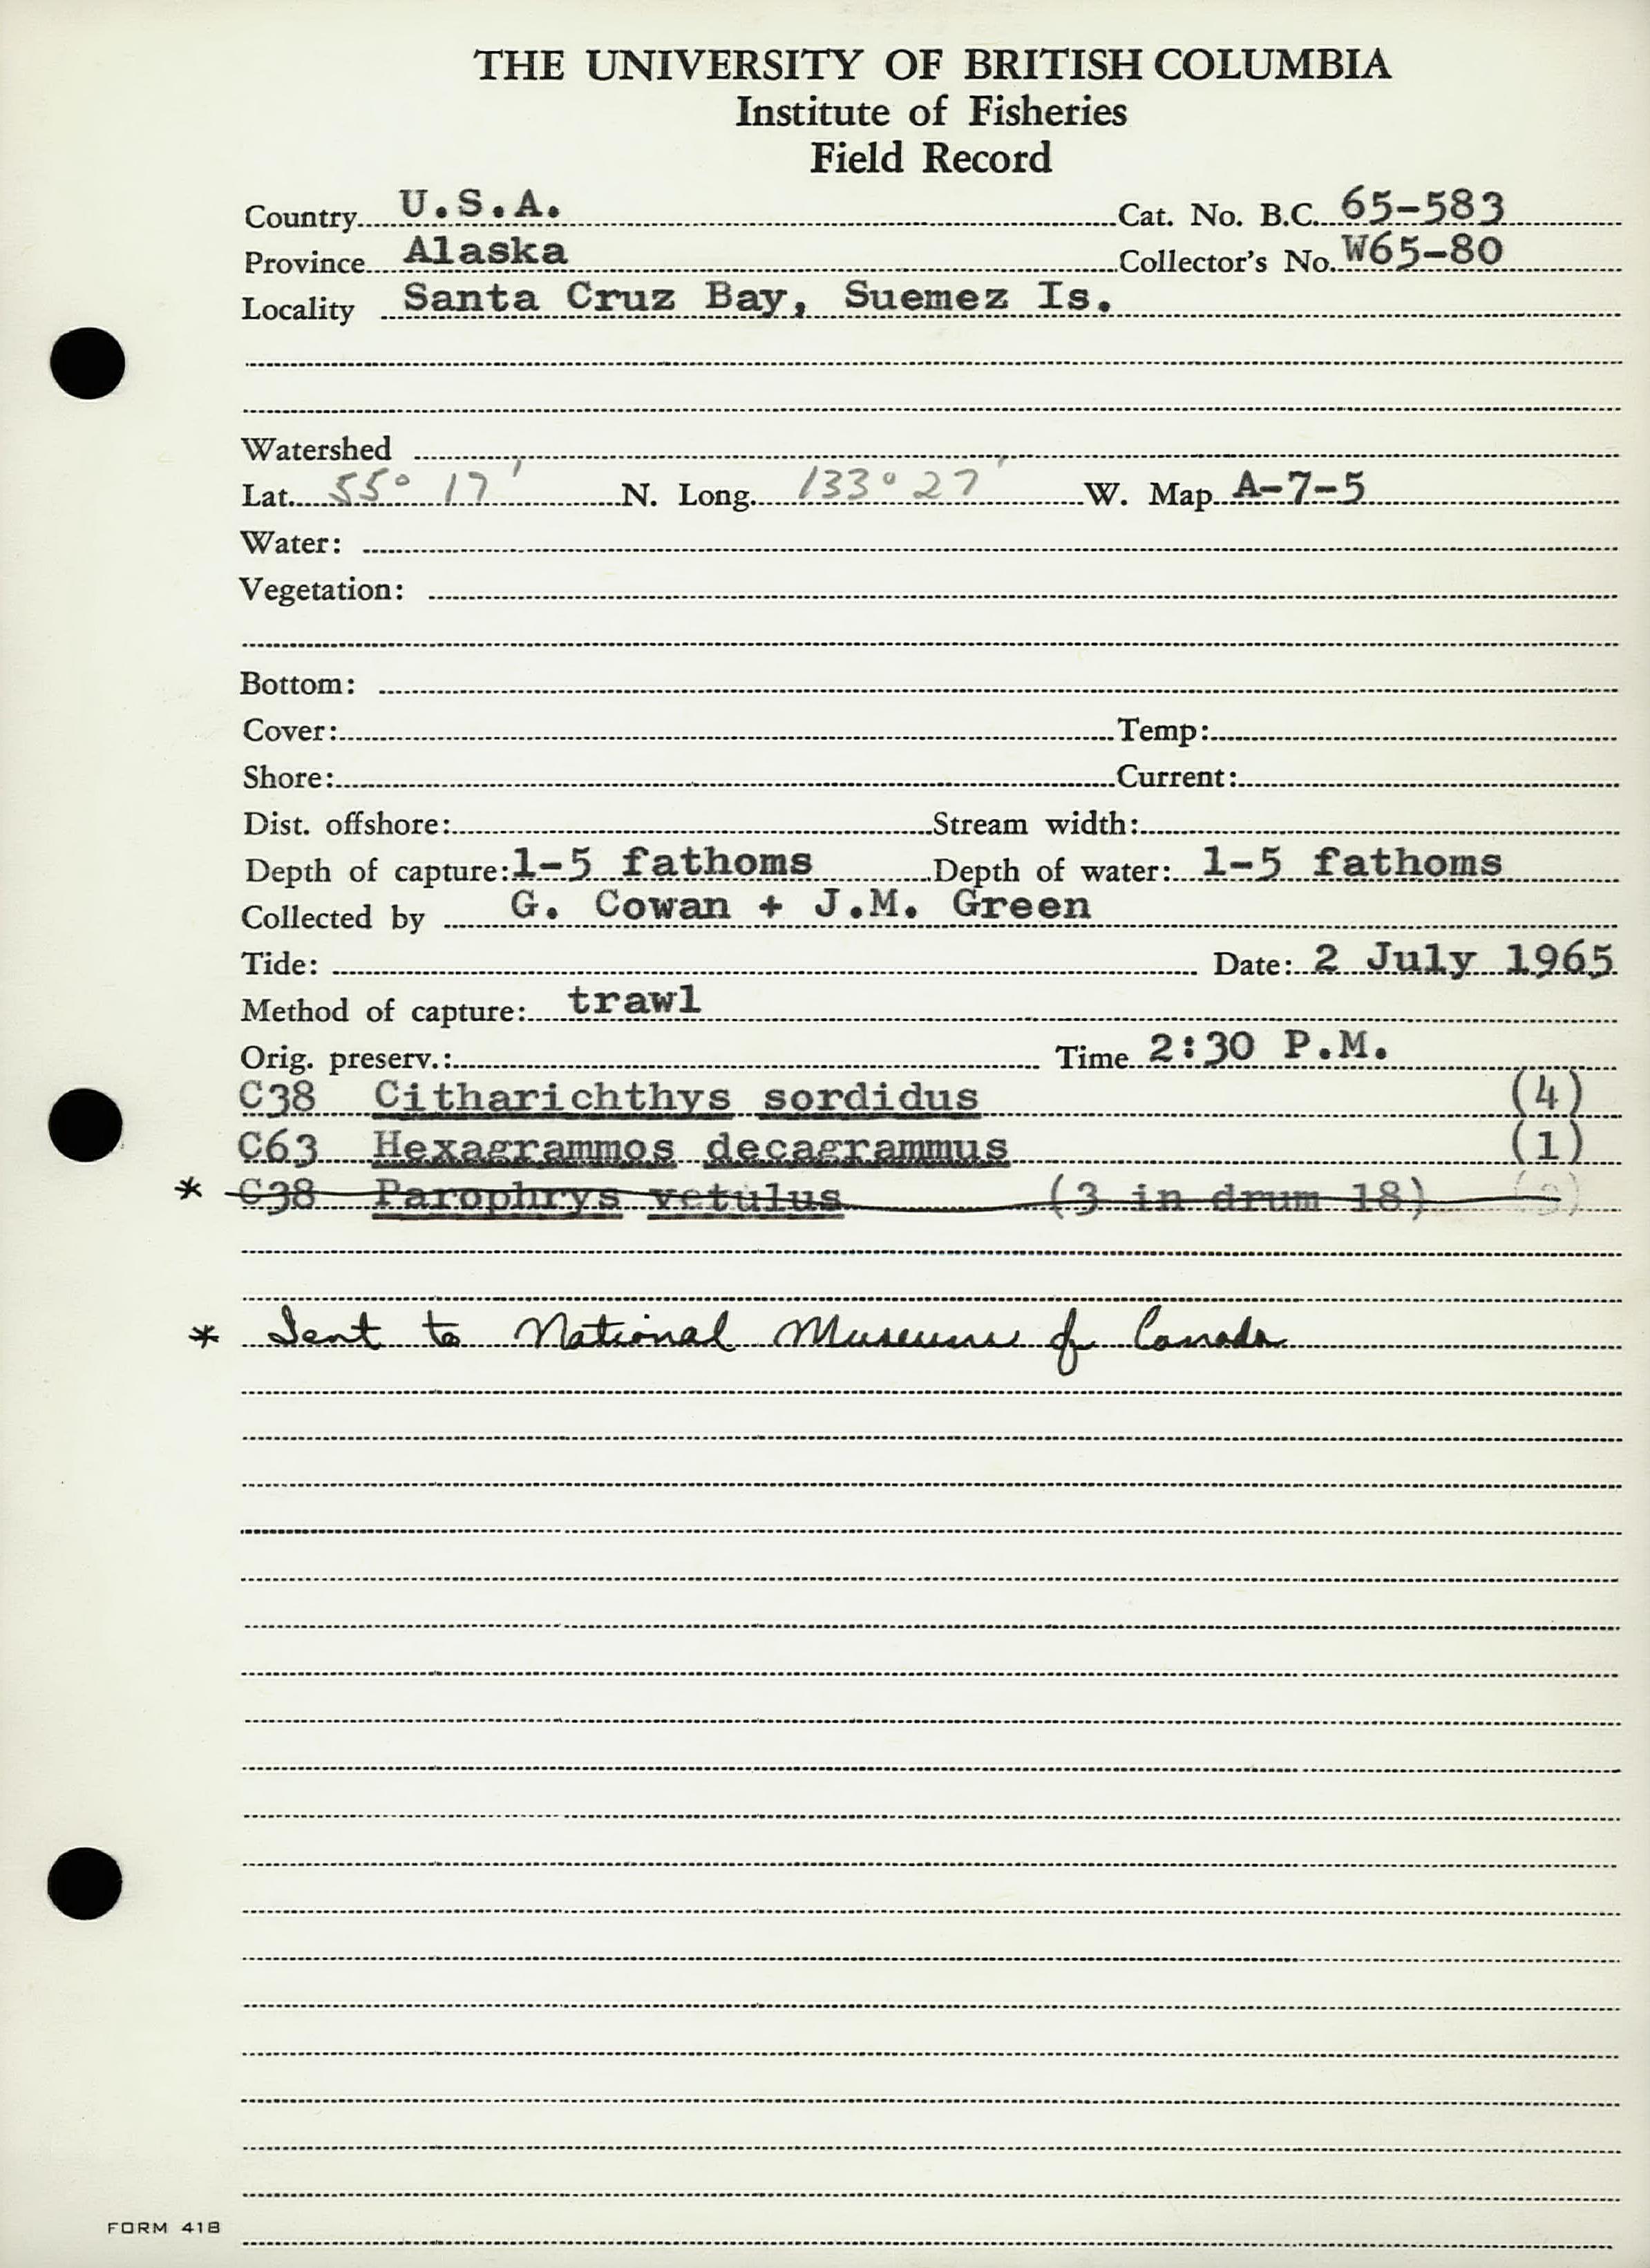 THE UNIVERSITY OF BRITISH COLUMBIA
Institute of Fisheries
Field Record
Country U.S.A. Cat. No. B.C. 65-583
Province Alaska Collector's No. W65-80
Locality Santa Cruz Bay, Suemez Is.
Watershed
Lat. 55° 17' N. Long. 133° 27' W. Map A-7-5
Water:
Vegetation:
Bottom:
Cover: Temp:
Shore: Current:
Dist. offshore: Stream width:
Depth of capture: 1-5 fathoms Depth of water: 1-5 fathoms
Collected by G. Cowan + J.M. Green
Tide: Date: 2 July 1965
Method of capture: trawl
Orig. preserv.: Time 2:30 P.M.
C38 Citharichthys sordidus (4)
C63 Hexagrammos decagrammus (1)
* C38 Parophrys vetulus (3 in drum 18)
* Sent to National Museum of Canada
FORM 418